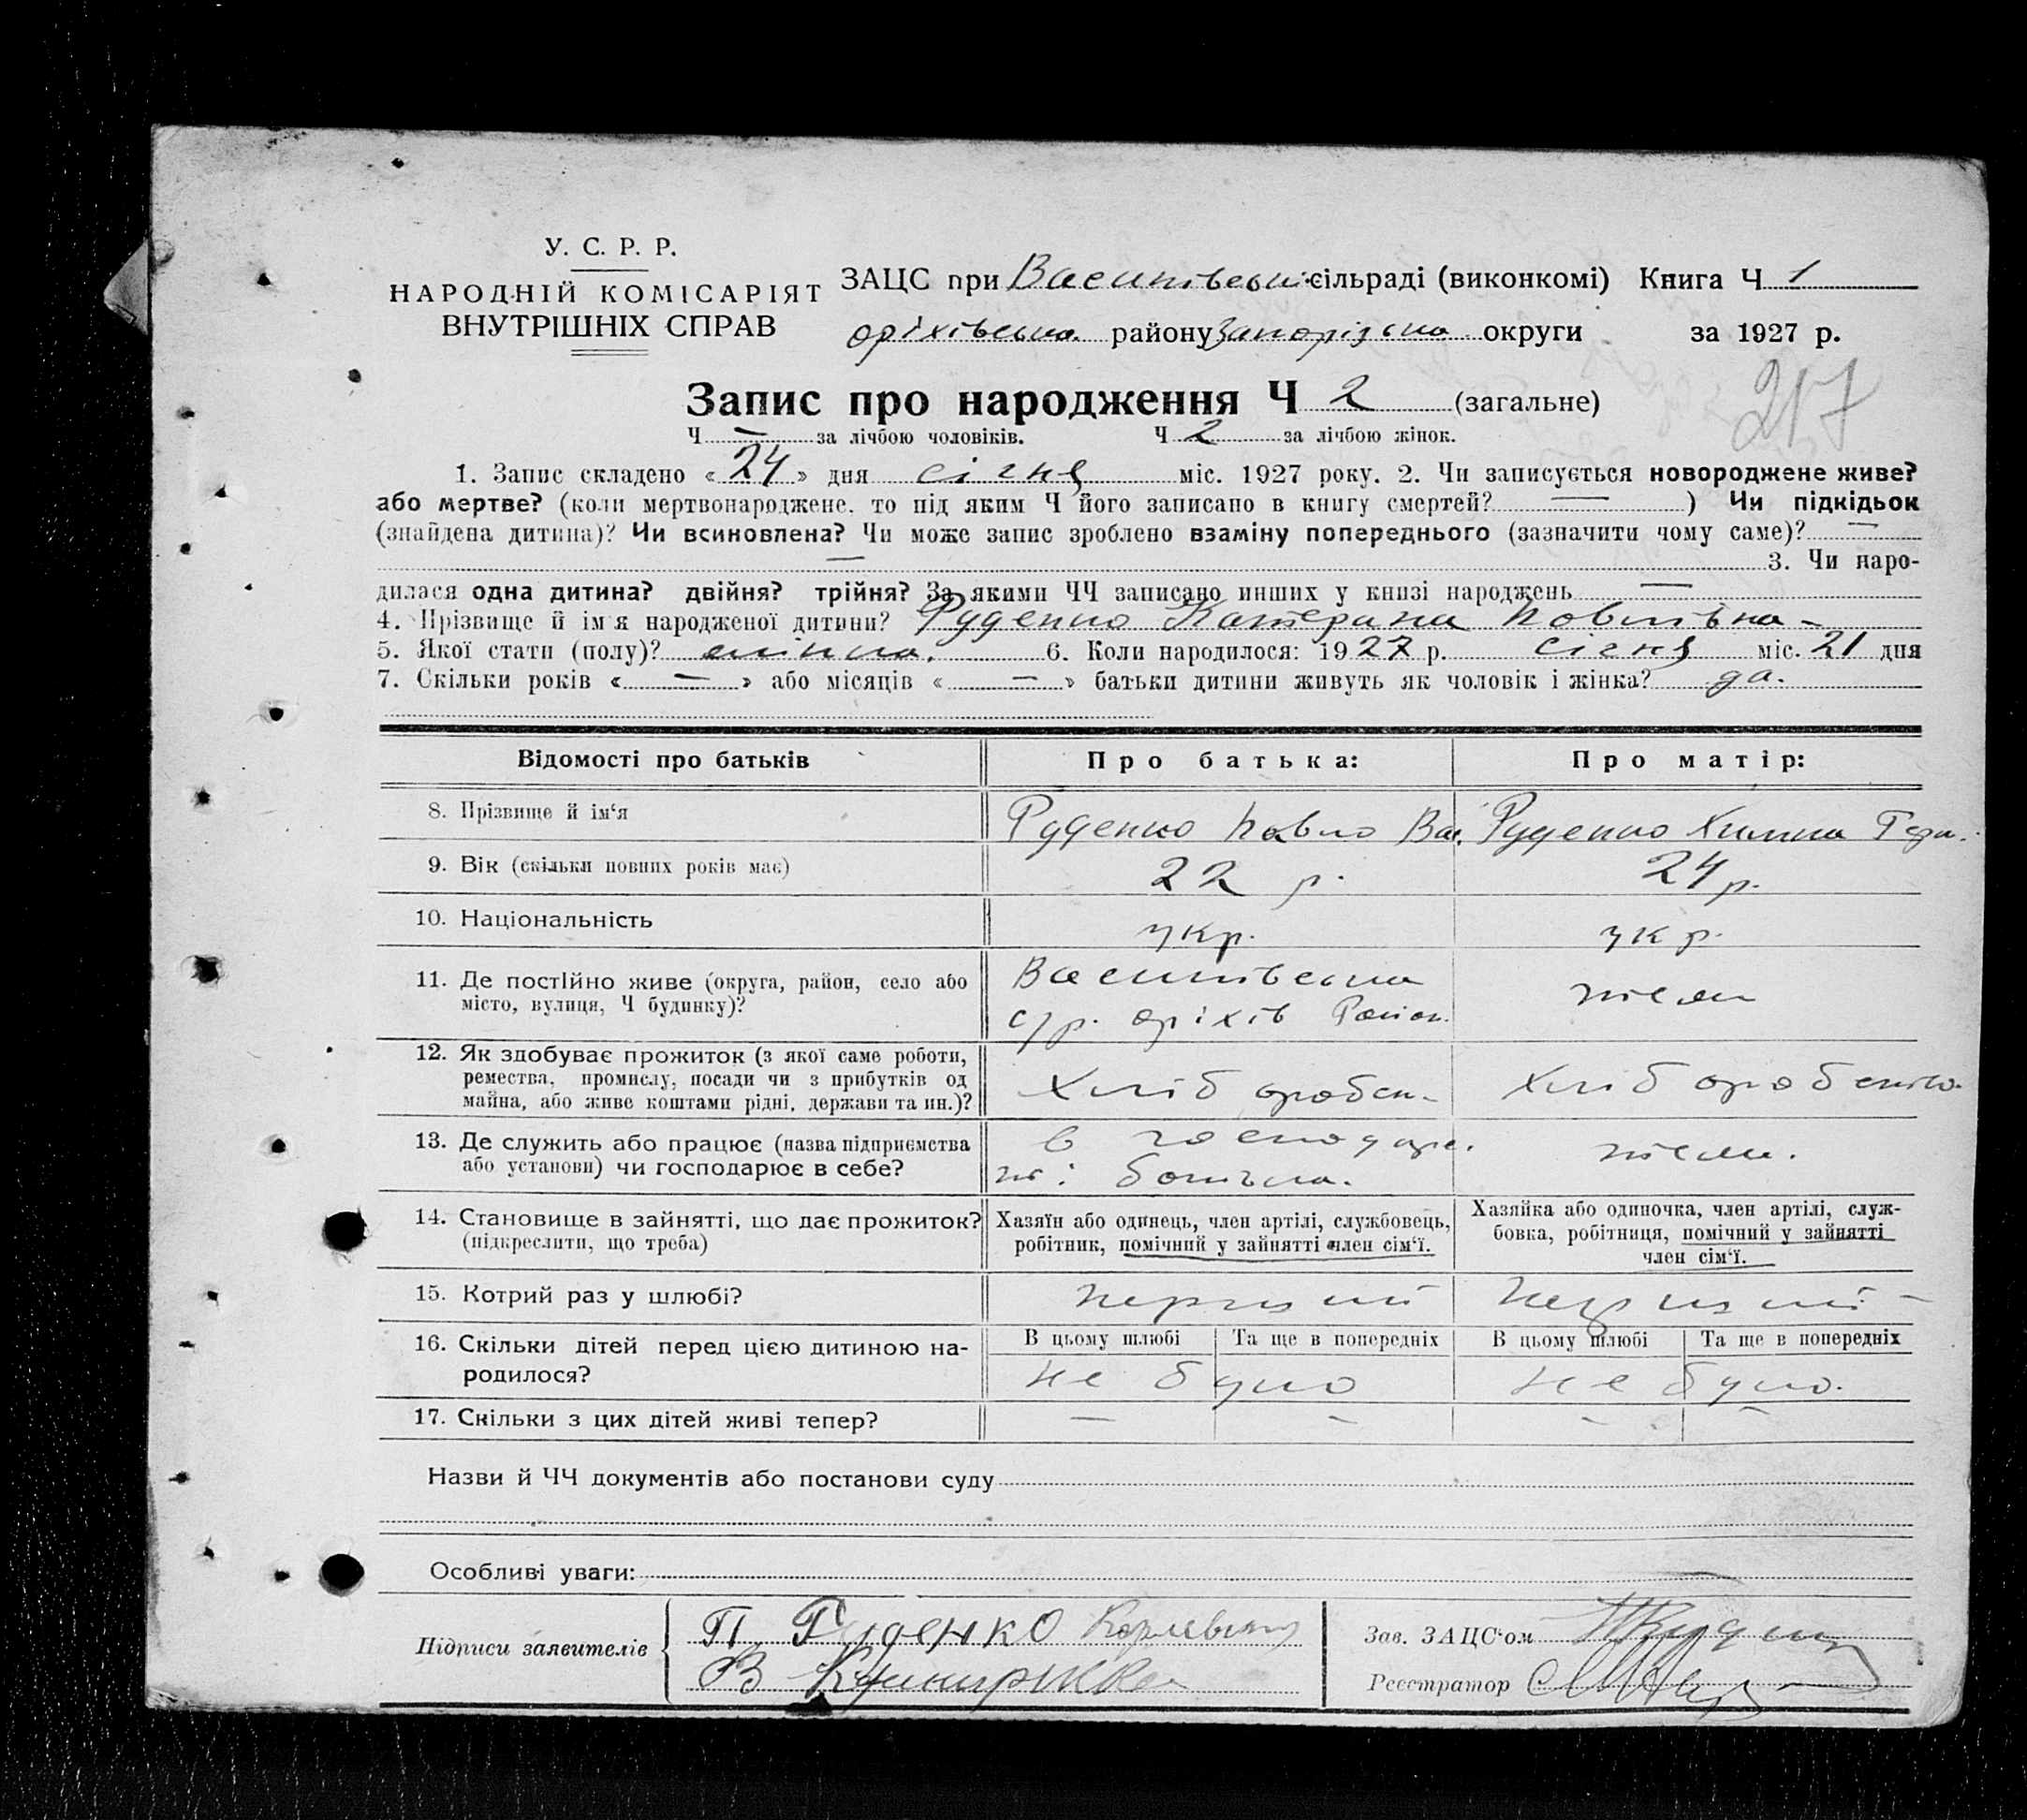 У. С. Р. Р.
НАРОДНІЙ КОМІСАРІЯТ
ВНУТРІШНІХ СПРАВ
ЗАЦС при Василівські сільраді (виконкомі) Книга Ч 1
оріхівсько району Запорізько округи за 1927 р.
217
Запис про народження Ч 2 (загальне)
Ч — за лічбою чоловіків. Ч 2 за лічбою жінок.
1. Запис складено «24» дня січня міс. 1927 року. 2. Чи записується новороджене живе?
або мертве? (коли мертвонароджене, то під яким Ч його записано в книгу смертей? — ) Чи підкідьок
(знайдена дитина)? Чи всиновлена? Чи може запис зроблено взаміну попереднього (зазначити чому саме)? —
— 3. Чи наро-
дилася одна дитина? двійня? трійня? За якими ЧЧ записано инших у книзі народжень —
4. Прізвище й ім'я народженої дитини? Руденко Катерина Павлівна —
5. Якої стати (полу)? 6. Коли народилося: 1927 р. січня міс. 21 дня
7. Скільки років «—» або місяців «—» батьки дитини живуть як чоловік і жінка? да.
Відомості про батьків Про батька: Про матір:
8. Прізвище й ім‘я Руденко Павло Вас. Руденко
9. Вік (скільки повних років має) 22 р. 24 р.
10. Національність укр. укр.
11. Де постійно живе (округа, район, село або
місто, вулиця, Ч будинку)?
Василівська
с/р. оріхів Район.
12. Як здобуває прожиток (з якої саме роботи,
ремества, промислу, посади чи з прибутків од
майна, або живе коштами рідні, держави та ин.)?
Хліборобсн- Хліборобство.
13. Де служить або працює (назва підприємства
або установи) чи господарює в себе?
в господарс.
тві батька.
14. Становище в зайнятті, що дає прожиток?
(підкреслити, що треба)
Хазяїн або одинець, член артілі, службовець,
робітник, помічний у зайнятті член сім‘ї.
Хазяйка або одиночка, член артілі, служ-
бовка, робітниця, помічний у зайнятті
член сім‘ї.
15. Котрий раз у шлюбі? перший перший —
16. Скільки дітей перед цією дитиною на-
родилося?
В цьому шлюбі Та ще в попередніх В цьому шлюбі Та ще в попередніх
не було не було.
17. Скільки з цих дітей живі тепер? — — — —
Назви й ЧЧ документів або постанови суду
Особливі уваги:
Підписи заявителів
П Руденко
В
Зав. ЗАЦС‘ом
Реєстратор